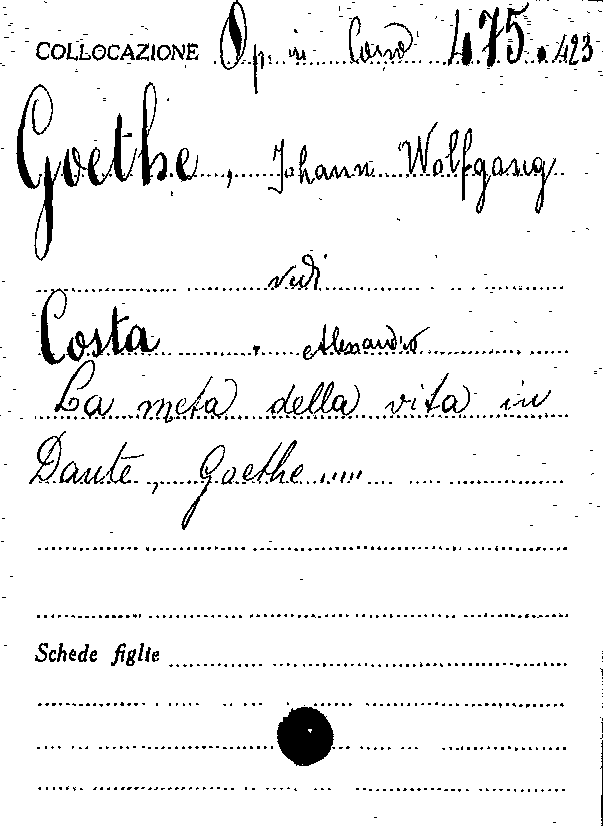 COLLOCAZIONE Op. in Cons 475.423
Goethe, Johann Wolfgang
vedi
Costa, Alessandro
La meta della vita in
Dante, Goethe .....
Schede figlie